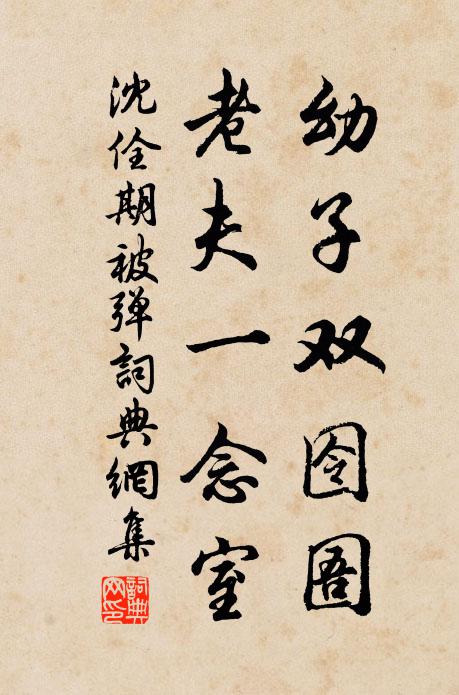 幼子双囹圄
老夫一念室
沈佺期被弹詞典網集
詞典
网印